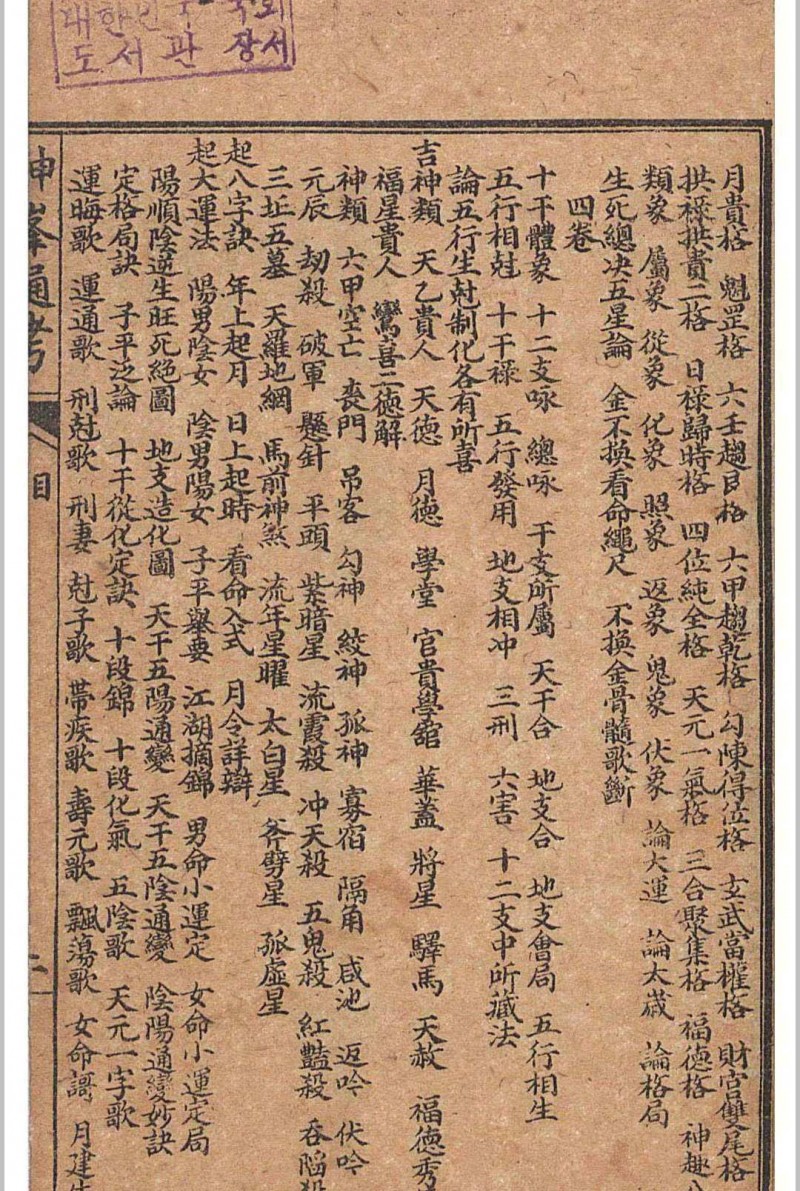 대한민국국회
도서관장서
月貴格 魁罡格 六壬趨艮格 六甲趨乾格 勾陳得位格 玄武當權格 財官雙尾格
拱祿拱貴二格 日祿歸時格 四位純全格 天元一氣格 三合聚集格 福德格 神趣八
類象 屬象 從象 化象 照象 返象 鬼象 伏象 論大運 論太歲 論格局
生死總决五星論 金不換看命繩尺 不換金骨髓歌斷
四卷
十干體象 十二支咏 總咏 干支所屬 天干合 地支合 地支會局 五行相生
五行相尅 十干祿 五行發用 地支相冲 三刑 六害 十二支中所藏法
論五行生尅制化各有所喜
吉神類 天乙貴人 天德 月德 學堂 官貴學舘 華蓋 將星 驛馬 天赦 福德秀
福星貴人 鸞喜二德解
神類 六甲空亡 喪門 吊客 勾神 絞神 孤神 寡宿 隔角 咸池 返吟 伏吟
元辰 劫殺 破軍 懸針 平頭 紫暗星 流霞殺 冲天殺 五鬼殺 紅豔殺 吞陷殺
三坵五墓 天羅地網 馬前神煞 流年星曜 太白星 斧劈星 孤虛星
起八字訣 年上起月 日上起時 看命入式 月令詳辯
起大運法 陽男陰女 陰男陽女 子平舉要 江湖摘錦 男命小運定 女命小運定局
陽順陰逆生旺死絕圖 地支造化圖 天干五陽通變 天干五陰通變 陰陽通變妙訣
定格局訣 子平泛論 十干從化定訣 十段錦 十段化氣 五陰歌 天元一字歌
運晦歌 運通歌 刑尅歌 刑妻 尅子歌 帶疾歌 壽元歌 飄蕩歌 女命謌 月建生
神峯通考 目 二